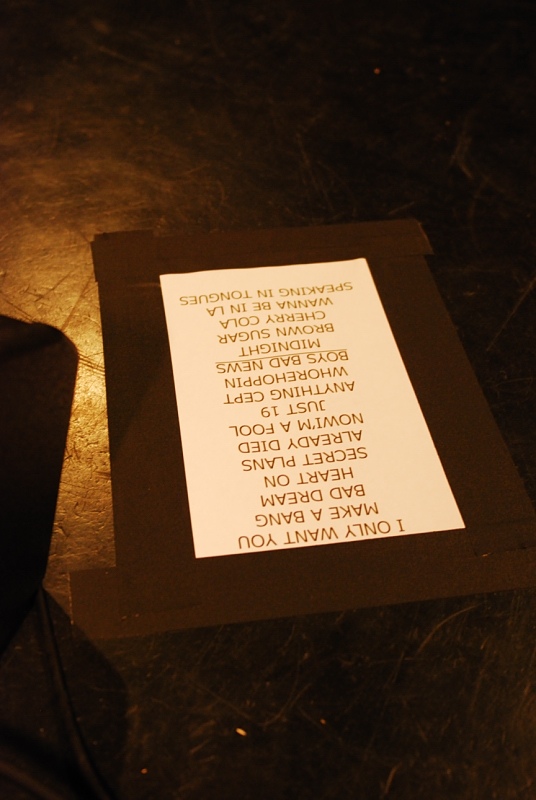 I ONLY WANT YOU
MAKE A BANG
BAD DREAM
HEART ON
SECRET PLANS
ALREADY DIED
NOWI'M A FOOL
JUST 19
ANYTHING CEPT
WHOREHOPPIN
BOYS BAD NEWS
MIDNIGHT
BROWN SUGAR
CHERRY COLA
WANNA BE IN LA
SPEAKING IN TONGUES